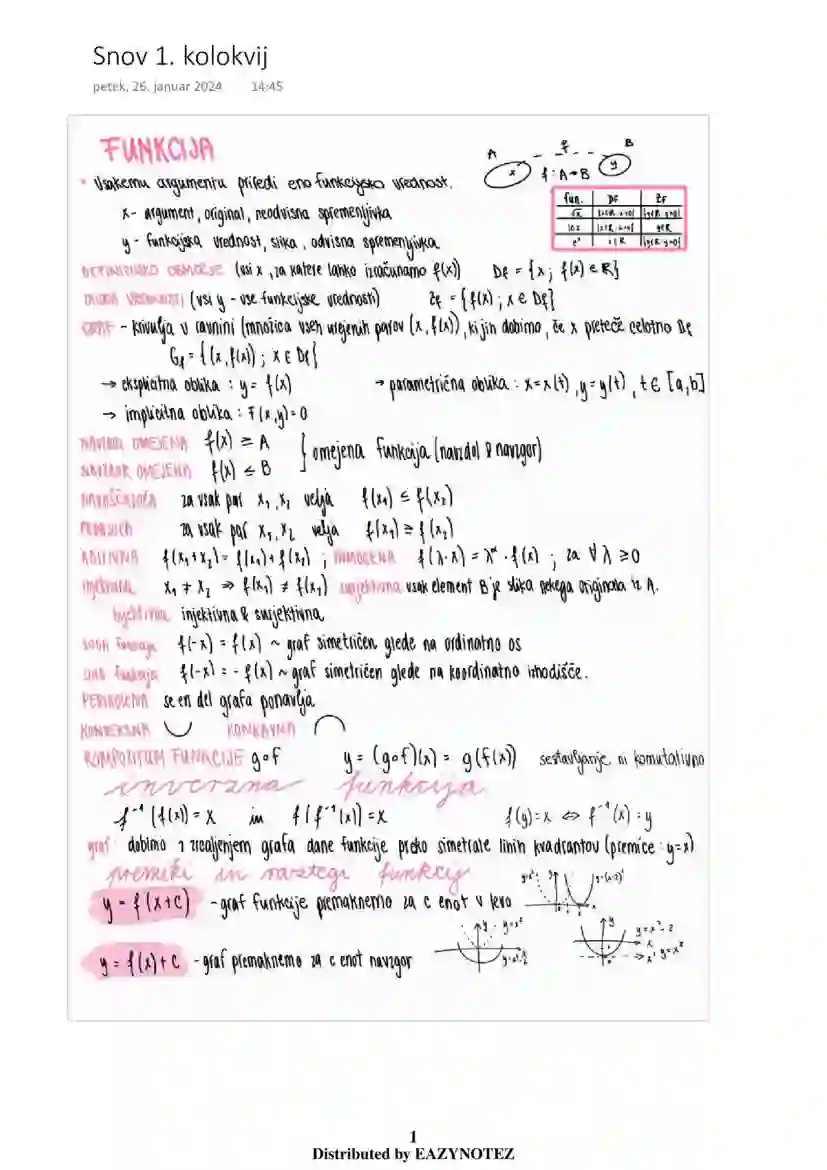 Snov 1. kolokvij
petek, 26. januar 2024 14:45
FUNKCIJA
A f B
x y
f: A→B
• Vsakemu argumentu priredi eno funkcijsko vrednost.
fun. Df Zf
√x {x∈R; x≥0} {y∈R; y≥0}
ln x {x∈R; x>0} y∈R
eˣ x∈R {y∈R; y>0}
x - argument, original, neodvisna spremenljivka
y - funkcijska vrednost, slika, odvisna spremenljivka
DEFINICIJSKO OBMOČJE (vsi x, za katere lahko izračunamo f(x)) Df = {x; f(x) ∈ R}
ZALOGA VREDNOSTI (vsi y - vse funkcijske vrednosti) Zf = {f(x); x ∈ Df}
GRAF - krivulja v ravnini (množica vseh urejenih parov (x, f(x)), ki jih dobimo, če x preteče celotno Df
Gf = {(x, f(x)); x ∈ Df}
→ eksplicitna oblika : y = f(x) → parametrična oblika : x = x(t), y = y(t), t ∈ [a,b]
→ implicitna oblika : F(x,y)=0
NAVZDOL OMEJENA f(x) ≥ A
NAVZGOR OMEJENA f(x) ≤ B
} omejena funkcija (navzdol & navzgor)
NARAŠČAJOČA za vsak par x₁, x₂ velja f(x₁) ≤ f(x₂)
PADAJOČA za vsak par x₁, x₂ velja f(x₁) ≥ f(x₂)
ADITIVNA f(x₁+x₂) = f(x₁)+f(x₂) ; HOMOGENA f(λ·x) = λᵅ · f(x) ; za ∀ λ ≥0
injektivna x₁ ≠ x₂ ⇒ f(x₁) ≠ f(x₂) surjektivna vsak element B je slika nekega originala iz A.
bijektivna injektivna & surjektivna
SODA funkcija f(-x) = f(x) ~ graf simetričen glede na ordinatno os
LIHA funkcija f(-x) = - f(x) ~ graf simetričen glede na koordinatno izhodišče.
PERIODIČNA se en del grafa ponavlja
KONVEKSNA KONKAVNA
KOMPOZITUM FUNKCIJE g∘f y = (g∘f)(x) = g(f(x)) sestavljanje ni komutativno
inverzna funkcija
f⁻¹(f(x)) = x in f(f⁻¹(x)) = x f(y)=x ⇔ f⁻¹(x) = y
graf dobimo z zrcaljenjem grafa dane funkcije preko simetrale lihih kvadrantov (premice : y=x)
premiki in raztegi funkcij
y = f(x+c) - graf funkcije premaknemo za c enot v levo
y=x² y
y = f(x)+c - graf premaknemo za c enot navzgor
y y=x²
y y=x²-2
x
y=x²
1
Distributed by EAZYNOTEZ